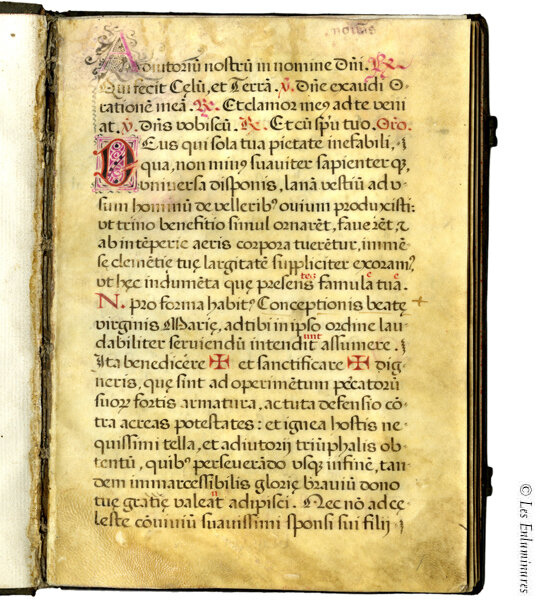 nouitiis
Adiutoriũ nostrũ in nomine Dñi. ℟.
Qui fecit Cęlũ, et Terrã ℣. Dñe exaudi O-
rationẽ meã. ℟. Et clamor meꝰ ad te veni
at. ℣. Dñs vobiscũ. ℟. Et cũ sp̃u tuo. Oro.
DEus qui sola tua pietate inefabili,
qua, non minꝰ suauiter sapienter qꝫ,
vniuersa disponis, lanã vestiũ ad v-
sum hominũ de velleribꝰ ouium produxisti:
vt trino benefitio simul ornarẽt, fauerẽt ⁊
ab intẽperie aeris corpora tuerẽtur, immẽ-
sę clemẽtię tuę largitatẽ suppliciter exoramꝰ,
vt hęc indumẽta quę presens famula tuã.
tes e
N. pro forma habitꝰ Conceptionis beatę
virginis Marię, ad tibi in ipso ordine lau-
dabiliter seruiendũ intendit assumere.
unt
Ita benedicere ✠ et sanctificare ✠ dig-
neris, quę sint ad operimẽtum pẽcatorũ
suorꝫ fortis armatura, ac tuta defensio cõ-
tra aereas potestates: et ignea hostis ne
quissimi tella, et adiutorij triũphalis ob-
tentũ, quibꝰ perseuerãdo vsqꝫ in finẽ, tan
dem immarcessibilis glorię brauiũ dono
tuę gratię valeat adipisci. Nec nõ ad cę-
n
leste cõuiuiũ suauissimi sponsi sui filij
© Les Enluminures